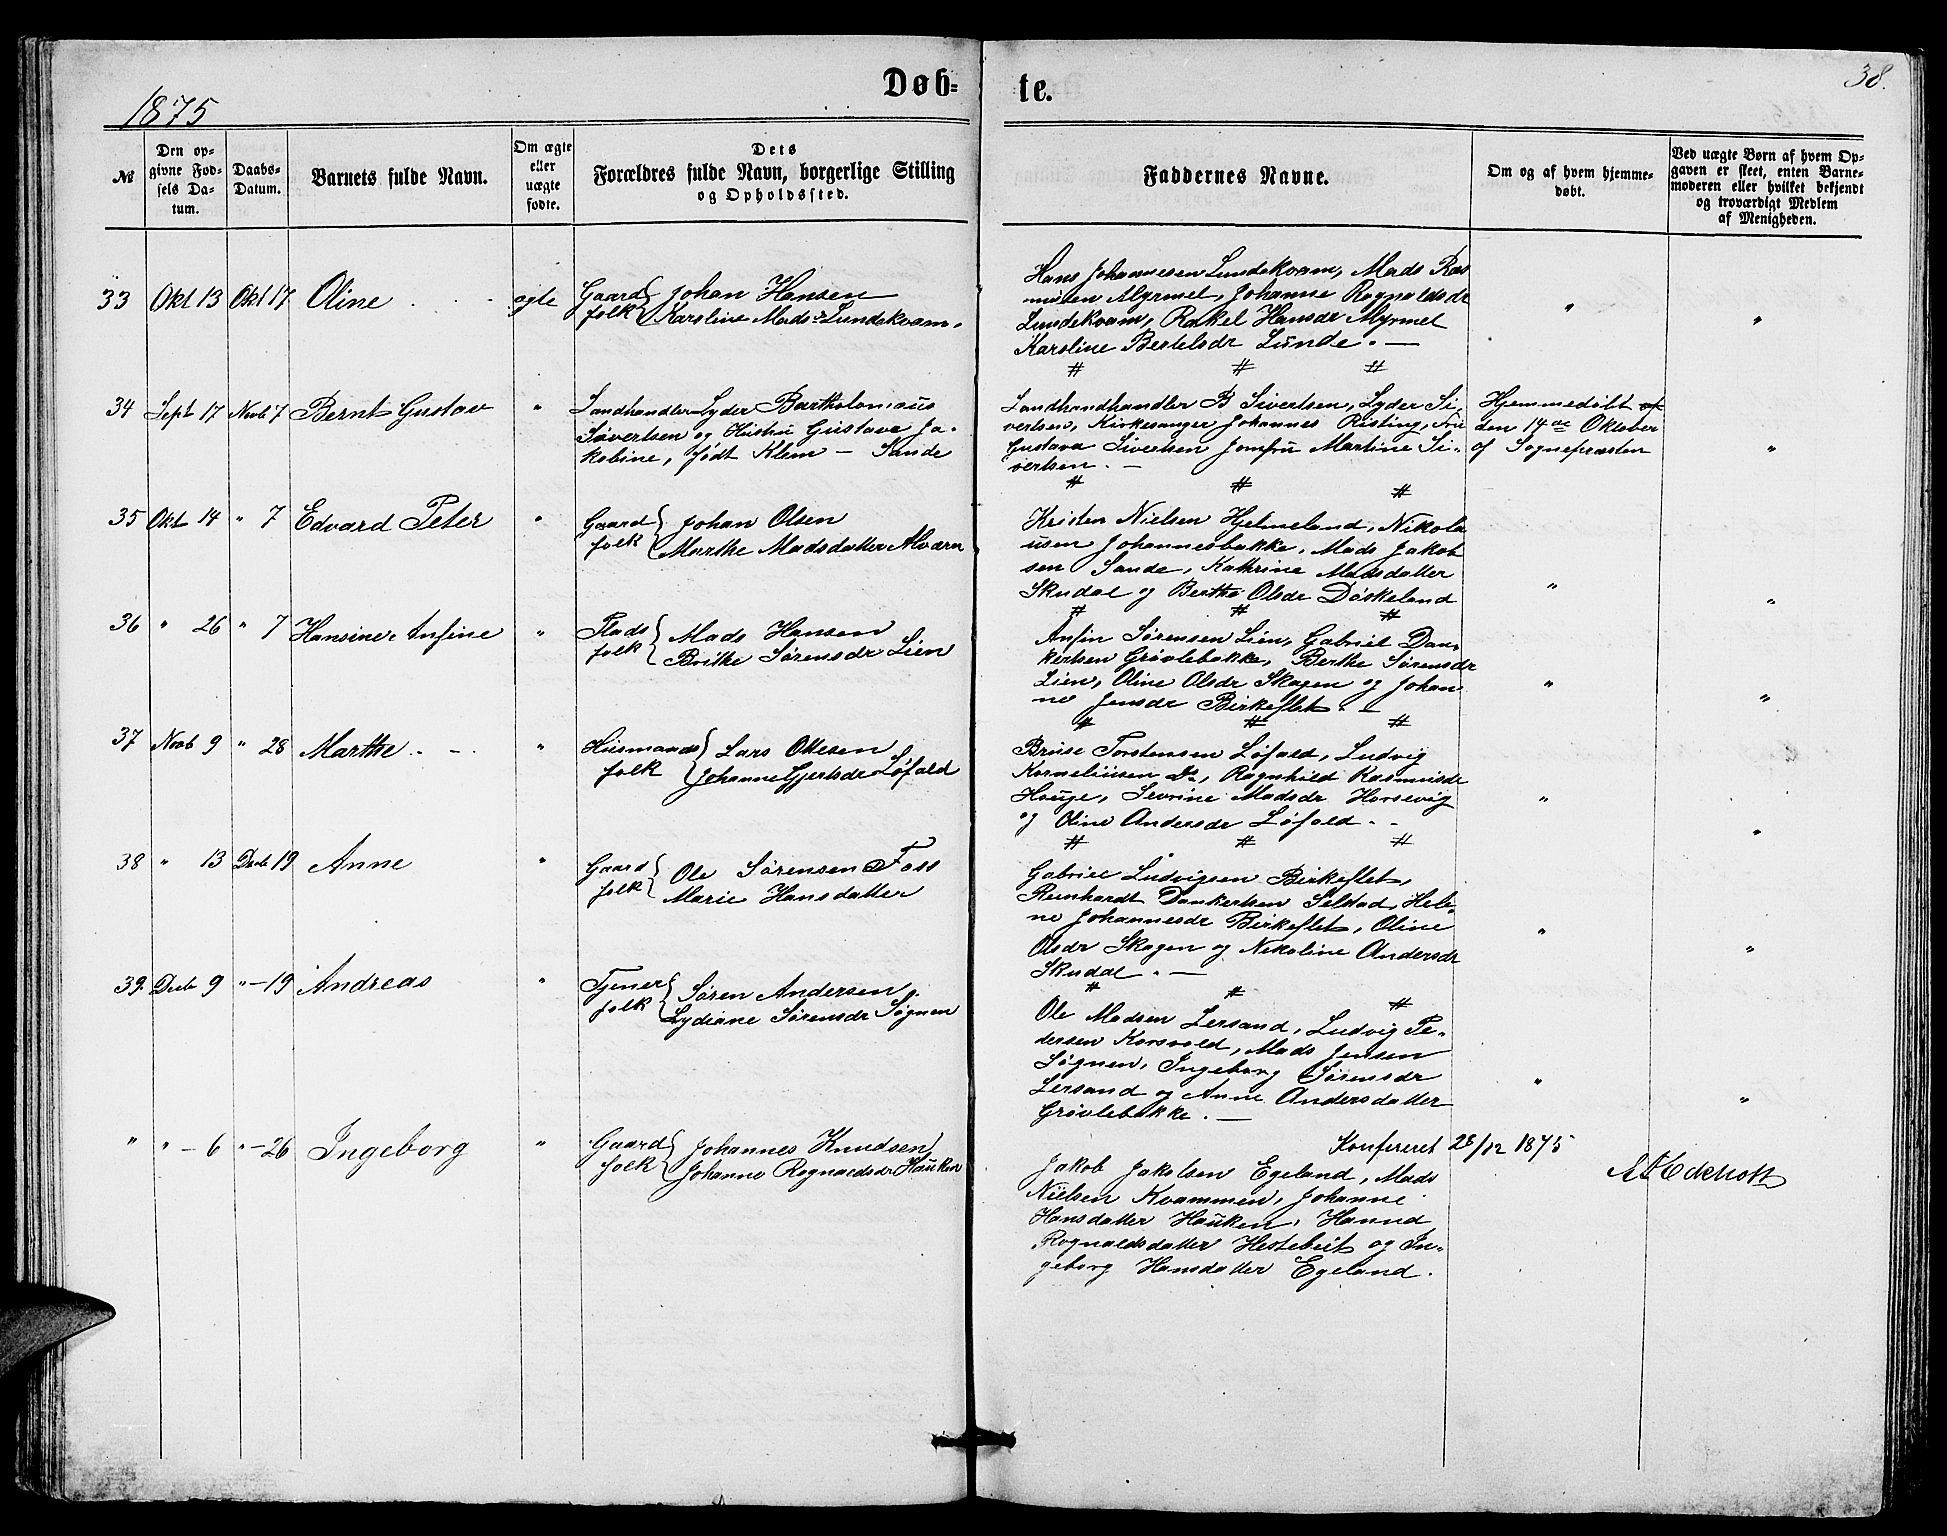 Døb=
te.
38.
1875
№
Den op-
givne Fød-
sels Da-
tum.
Daabs-
Datum.
Barnets fulde Navn.
Om ægte
eller
uægte
fødte.
Dets
Forældres fulde Navn, borgerlige Stilling
og Opholdssted.
Faddernes Navne.
Om og af hvem hjemme-
døbt.
Ved uægte Børn af hvem Op-
gaven er skeet, enten Barne-
moderen eller hvilket bekjendt
og troværdigt Medlem
af Menigheden.
33 Okt 13 Okt 17 Oline ægte Gaard folk { Johan Hansen
Karoline Madsdr Lundekvam.
Hans Johannesen Lundekvam, Mads Ras
musen Myrmel, Johanne Rognaldsdr
Lundekvam, Rakel Hansdr Myrmel
Karoline Bertelsdr Lunde. —
34 Sept 17 Novb 7 Bernt Gustav " Landhandler Lyder Bartholomæus
Sivertsen og Hustru Gustave Ja-
kobine, født Klem — Sande
Landhandhandler B Sivertsen, Lyder Si-
vertsen, Kirkesanger Johannes Risting, Fru
Gustava Sivertsen Jomfru Martine Si-
vertsen. —
Hjemmedøbt
den 14de Oktober
af Sognepræsten
"
35 Okt 14 " 7 Edvard Peter " Gaard folk { Johan Olsen
Marthe Madsdatter Alværn
Kristen Nielsen Hjelmeland, Nikola
usen Johannesbakke, Mads Jakob
sen Sande, Kathrine Madsdatter
Skudal og Berthe Olsdr Døskeland
36 " 26 " 7 Hansine Anfine " Plads folk { Mads Hansen
Brithe Sørensdr Lien
Anfin Sørensen Lien, Gabriel Dan-
kertsen Grøvlebakke, Berthe Sørensdr
Lien, Oline Olsdr Skagen og Johan
ne Jensdr Birkeflet. —
37 Novb 9 " 28 Marthe " Husmands folk { Lars Ottesen
Johanne Gjertsdr Løfald
Bruse Torstensen Løfald, Ludvig
Korneliusen Do, Ragnhild Rasmusdr
Hauge, Severine Madsdr Horsevig
og Oline Andersdr Løfald. -
38 " 13 Decb 19 Anne " Gaard folk { Ole Sørensen Foss
Marie Hansdatter
Gabriel Ludvigsen Birkeflet,
Reinhardt Dankertsen Selstad, Hele-
ne Johannesdr Birkeflet, Oline
Olsdr Skagen og Nikoline Andersdr
Skudal. —
39. Decb 9 "—19 Andreas " Tjener folk { Søren Andersen
Lydiane Sørensdr Søgnen
Ole Madsen Lersand, Ludvig Pe-
dersen Korsvold, Mads Jensen
Søgnen, Ingeborg Sørensdr
Lersand og Anne Andersdatter
Grøvlebakke. —
Konfereret 28/12 1875
" "—6 "—26 Ingeborg " Gaard folk { Johannes Knudsen
Johanne Rognaldsdr Hauken
Jakob Jakobsen Egeland, Mads
Nielsen Kvammen, Johanne
Hansdatter Hauken, Hanna
Rognaldsdatter Hestebeit og In-
geborg Hansdatter Egeland.